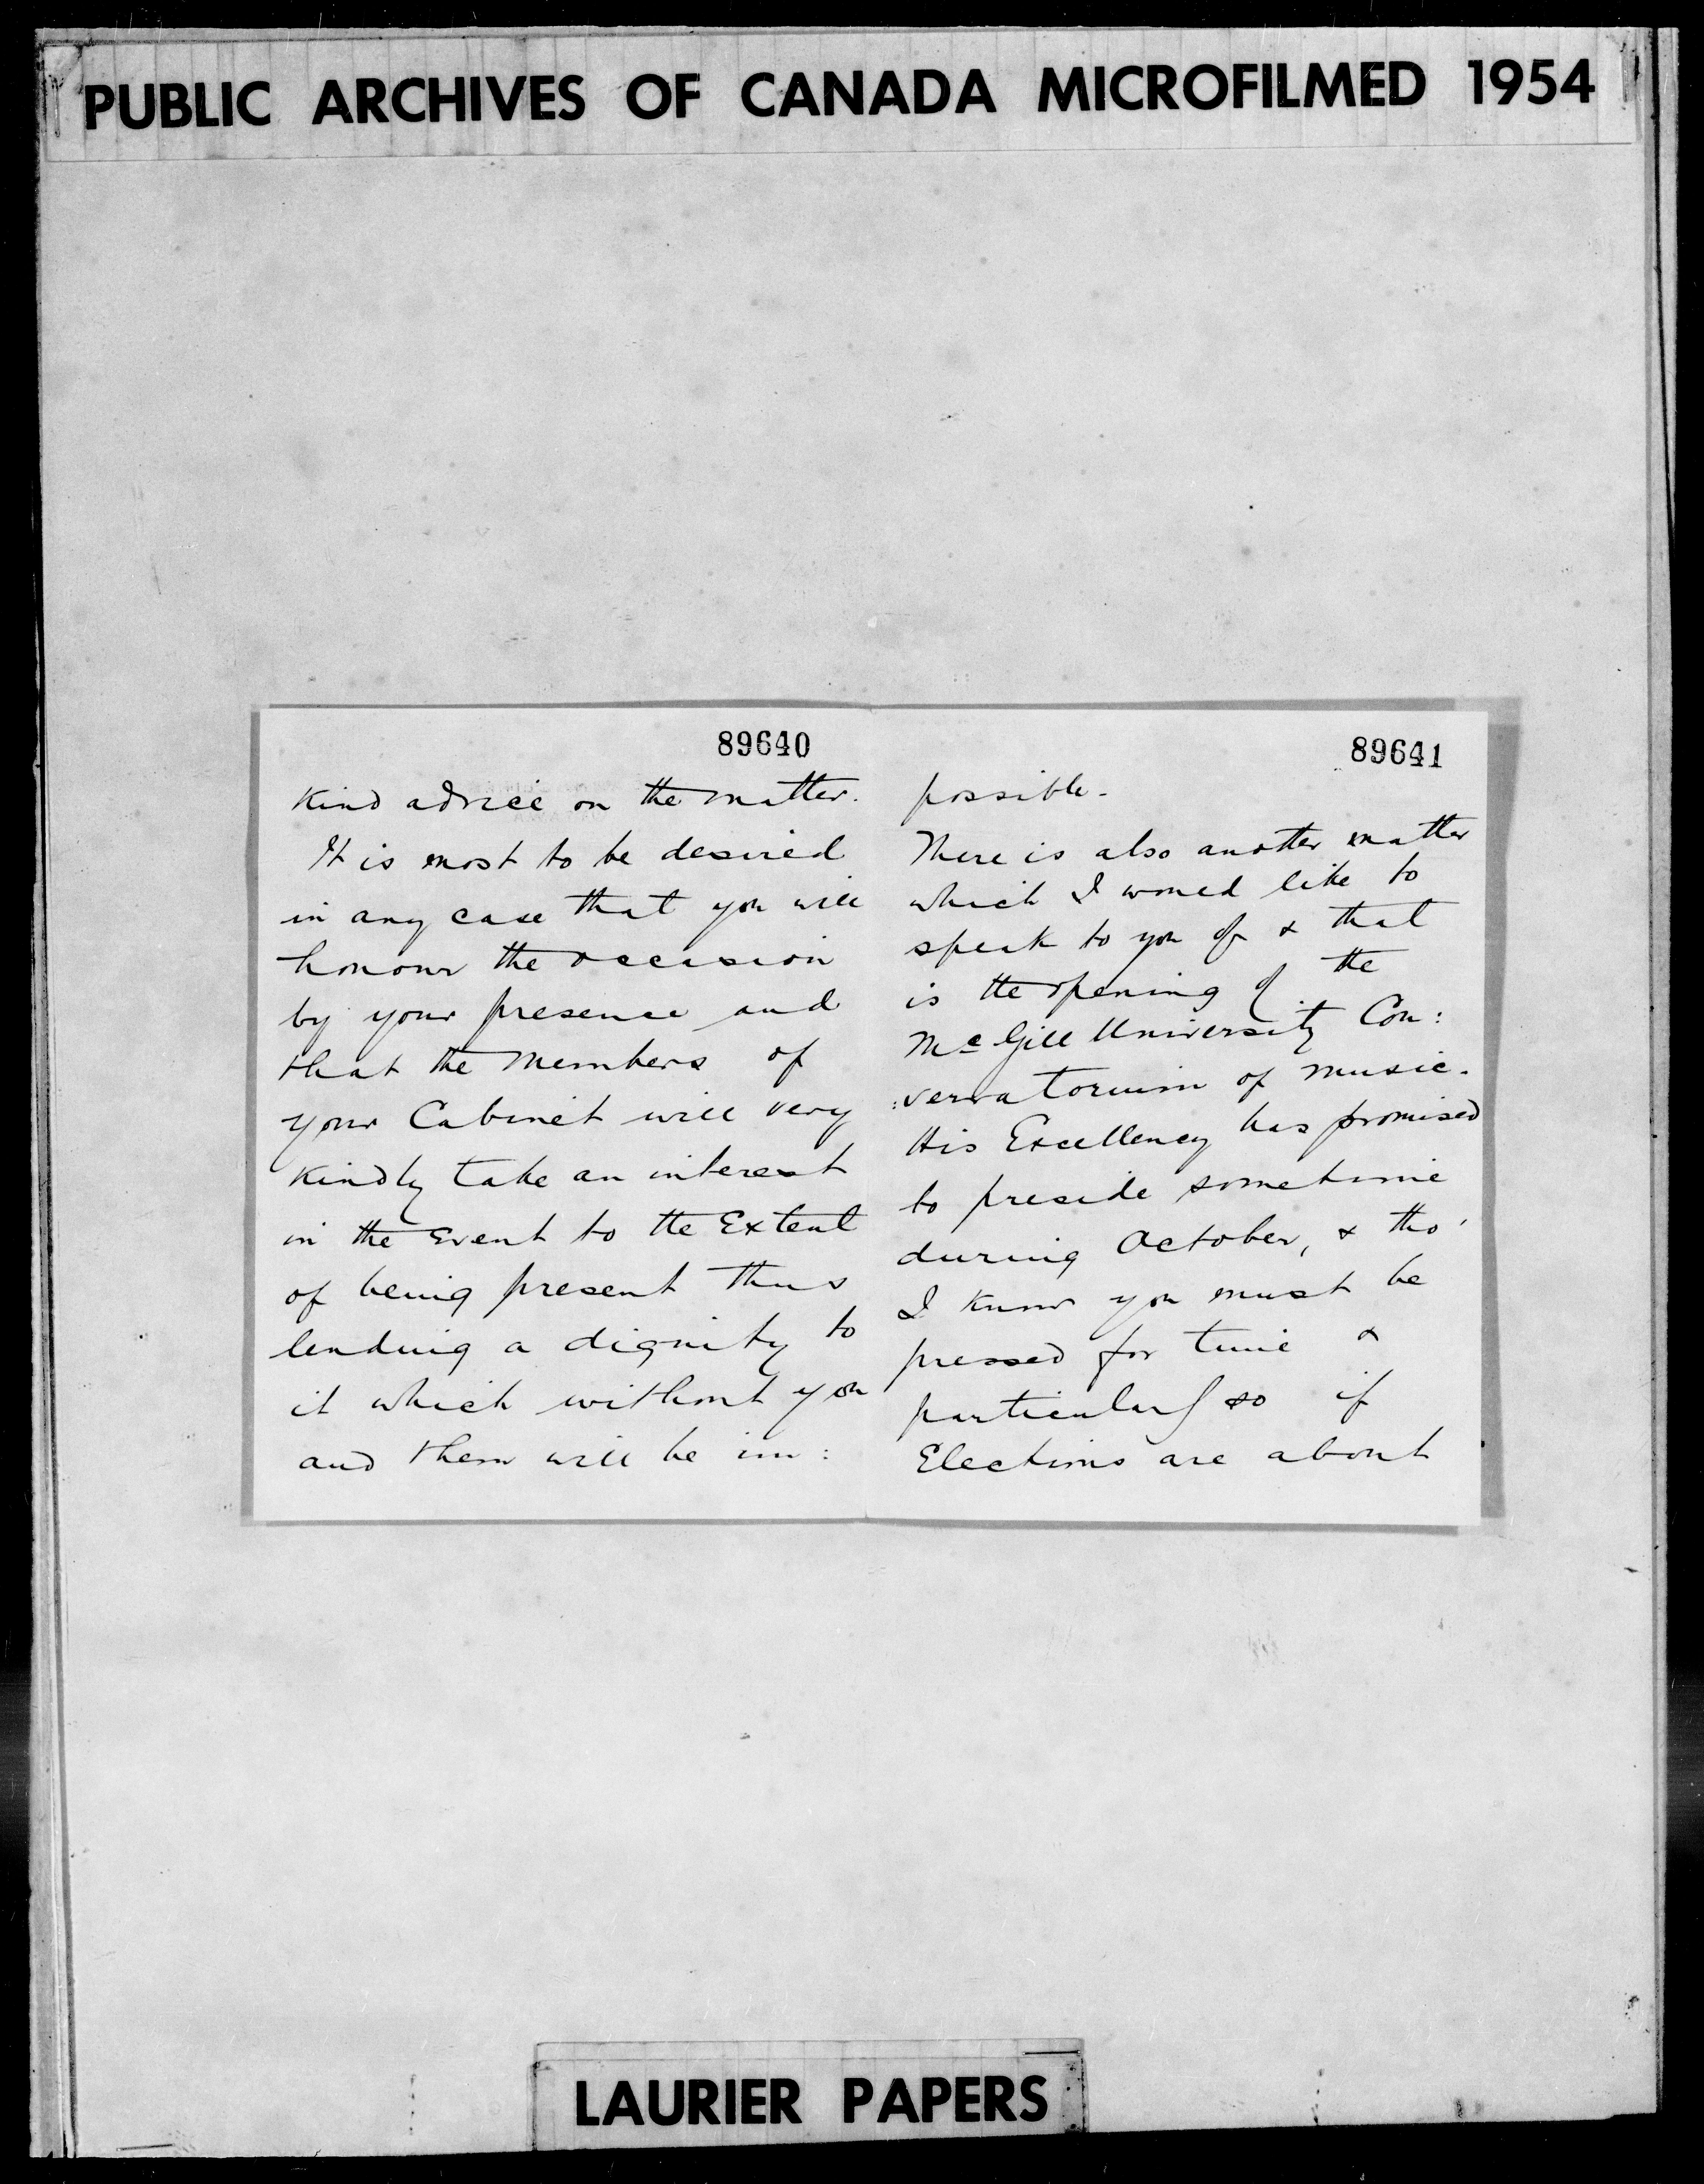 PUBLIC ARCHIVES OF CANADA MICROFILMED 1954
89640
kind advice on the matter.
It is most to be desired
in any case that you will
honour the occasion
by your presence and
that the Members of
your Cabinet will very
kindly take an interest
in the Event to the Extent
of being present thus
lending a dignity to
it which without you
and them will be im:
89641
possible.
There is also another matter
which I would like to
speak to you of & that
is the opening of the
McGill University Con:
:servatorium of music.
His Excellency has promised
to preside sometime
during October, & tho'
I know you must be
pressed for time &
particularly so if
Elections are about
LAURIER PAPERS